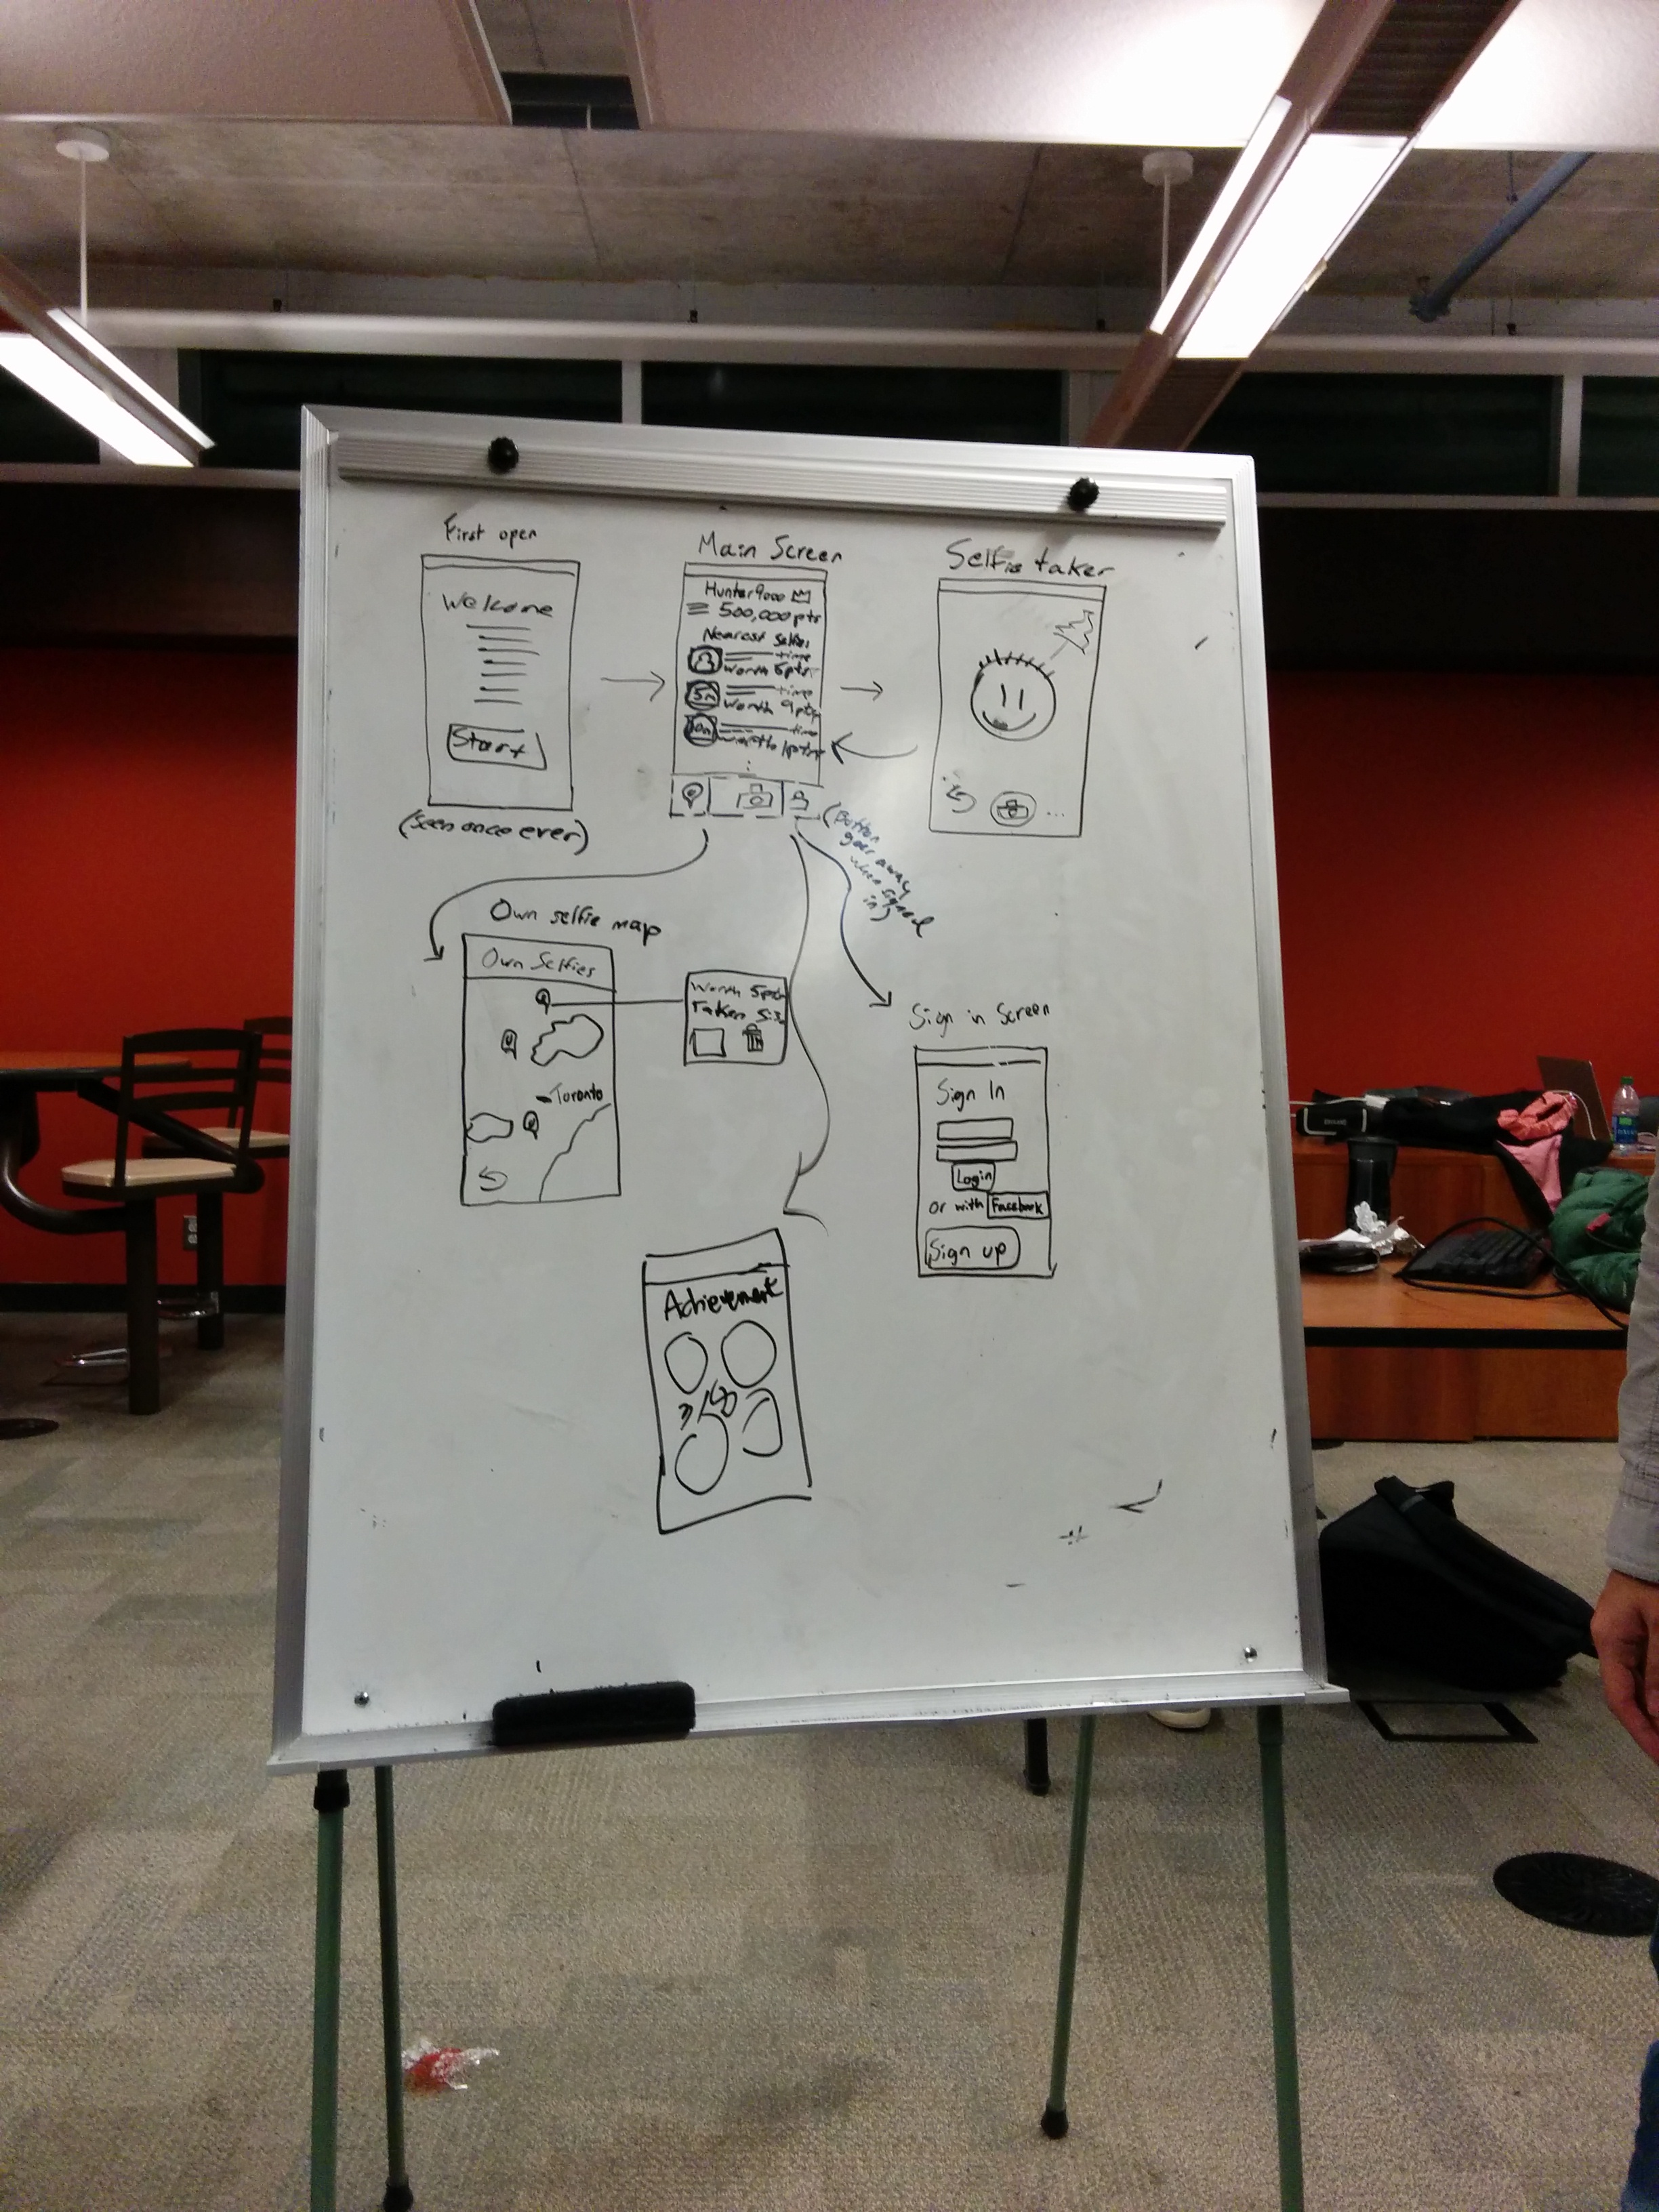 First open
Welcome
Start
(seen once ever)
Main Screen
Hunter9000
500,000pts
Nearest Selfies
time
worth 5pts
5m
time
worth 9pts
10m
time
worth 1pts
Selfie taker
...
(Button
goes away
when signed
in)
Own selfie map
Own Selfies
Toronto
Worth 5pts
Taken
Sign in Screen
Sign In
Login
or with Facebook
Sign up
Achievement